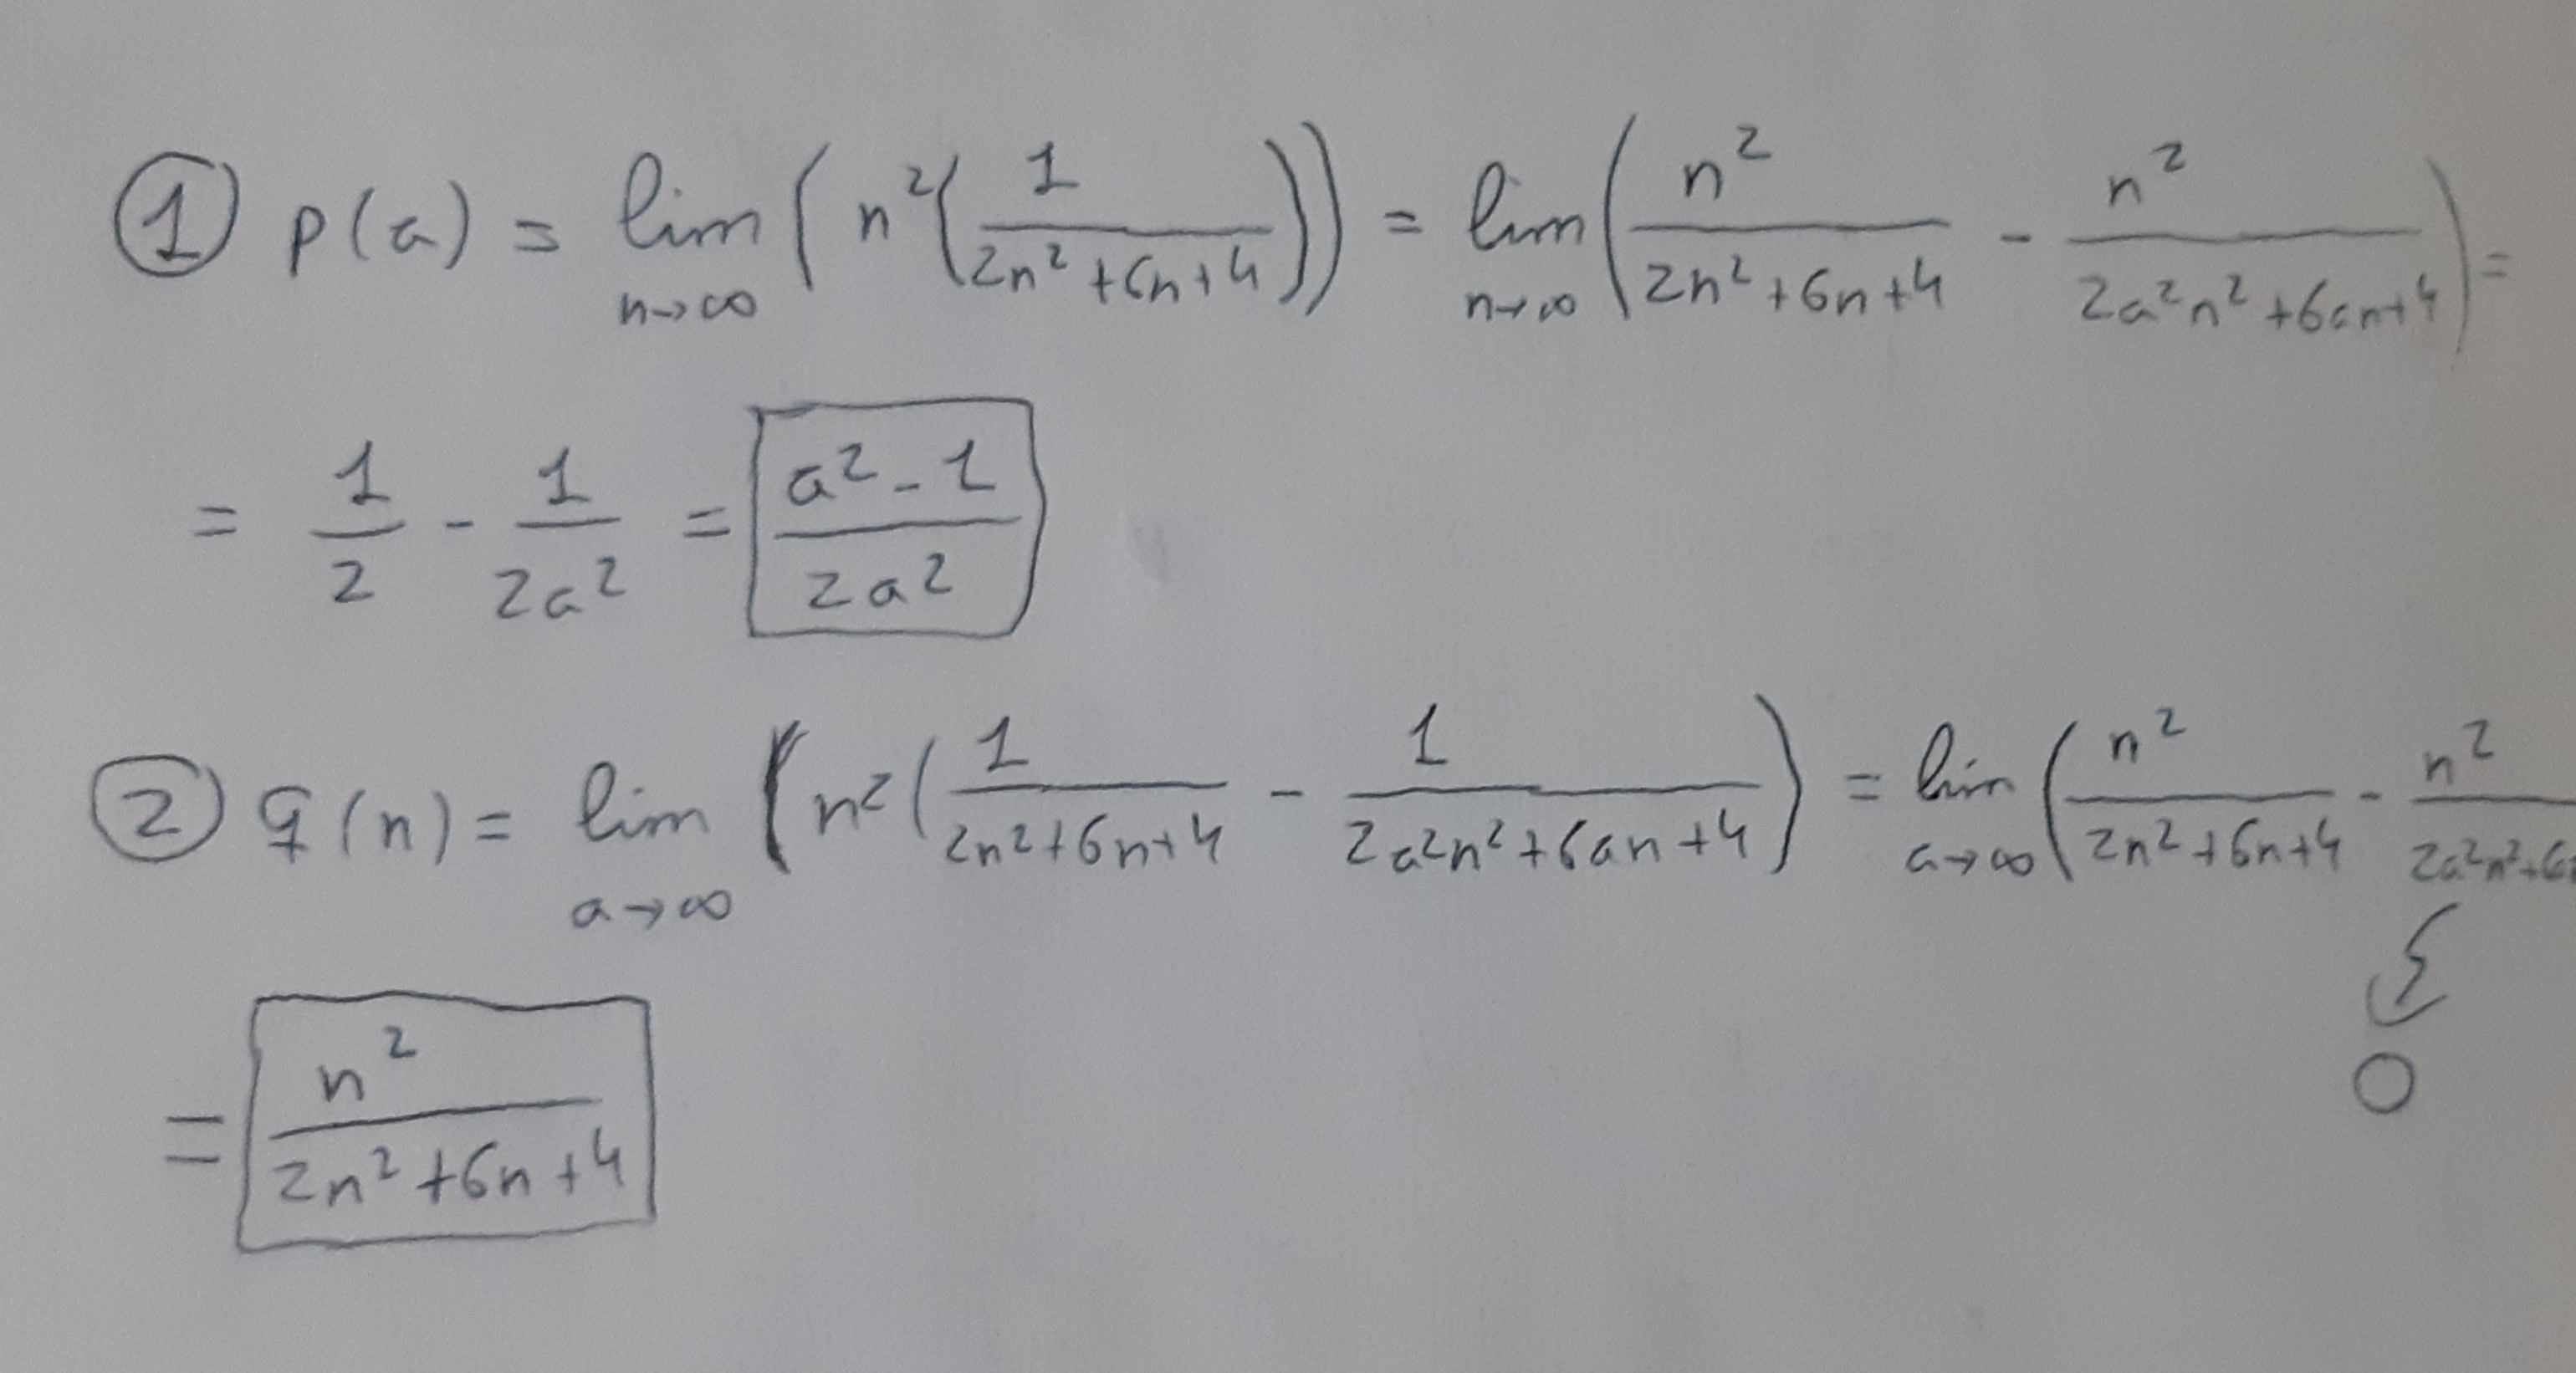 ① p(a) = lim n→∞ (n²(1/(2n²+6n+4))) = lim n→∞ (n²/(2n²+6n+4) - n²/(2a²n²+6an+4)) =
= 1/2 - 1/(2a²) = (a²-1)/(2a²)
② q(n) = lim a→∞ (n²(1/(2n²+6n+4) - 1/(2a²n²+6an+4)) = lim a→∞ (n²/(2n²+6n+4) - n²/(2a²n²+6
0
= n²/(2n²+6n+4)